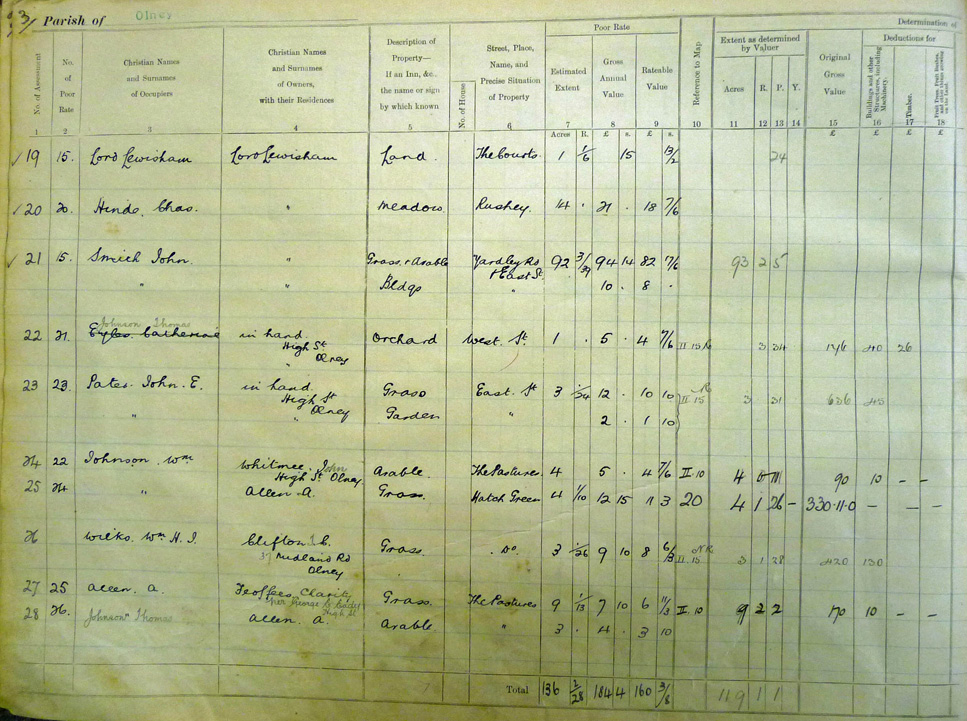 3/ Parish of Olney
Poor Rate
Determination of
No. of Assessment
No. of Poor Rate
Christian Names and Surnames of Occupiers
Christian Names and Surnames of Owners, with their Residences
Description of Property— If an Inn, &c., the name or sign by which known
No. of House
Street, Place, Name, and Precise Situation of Property
Estimated Extent
Gross Annual Value
Rateable Value
Reference to Map
Extent as determined by Valuer
Acres R. P. Y.
Original Gross Value
Deductions for
Buildings and other Structures, including Machinery.
Timber.
Fruit Trees, Fruit Bushes, and other things growing on the land.
1 2 3 4 5 6 7 8 9 10 11 12 13 14 15 16 17 18
Acres R. £ s. £ s. £ £ £ £
19 15. Lord Lewisham Lord Lewisham Land. The Courts. 1 1/6 15 13/2 24
20 20. Hinds. Chas. " Meadow Rushey. 14 . 21 . 18 7/6
21 15. Smith John. " Grass & Arable Yardley Rd 92 3/39 94 14 82 7/6 93 2 5
& East St.
" " Bldgs " 10 . 8 .
Johnson Thomas
22 21. Eyles. Catherine in hand. Orchard West. St. 1 . 5 . 4 7/6 II 15 3 34 146 40 26
High St
Olney
23 23. Pates. John. E. in hand. Grass East. St 3 /34 12 . 10 10 II 15 3 31 636 45
High St
Olney
" " Garden " 2 . 1 10
24 22 Johnson. Wm Whitmee. John Arable The Pastures. 4 5 . 4 7/6 II.10 4 0 90 10 – –
High St. Olney
25 24 " Allen A. Grass. Hatch Green 4 1/10 12 15 11 3 20 4 1 26 – 330.11.0 – – –
26 Wilks. Wm H. J. Clifton Grass. . Do. 3 1/26 9 10 8 6/3 II.15 3 1 28 420 130
37 Midland Rd
Olney
27 25 Allen. A. Feoffees Charity Grass. The Pastures 9 1/13 7 10 6 11/3 II.10 9 2 2 170 10 – –
High St
28 26. Johnson Thomas Allen. A. Arable " 3 . 4 . 3 10
Total 136 1/28 184 4 160 3/8 119 1 1